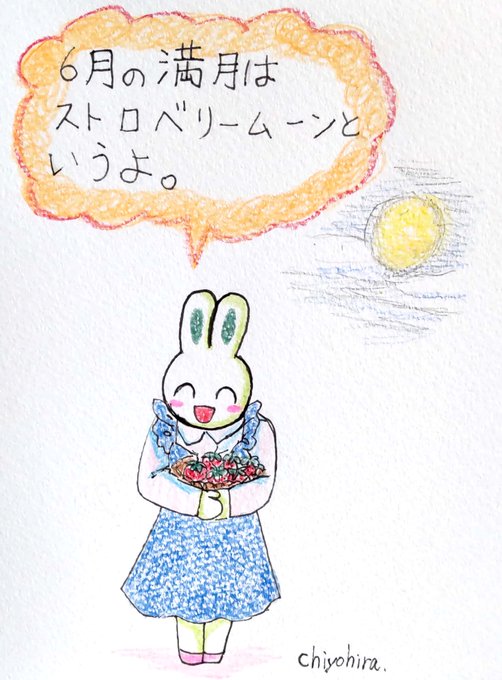 6月の満月は
ストロベリームーンと
いうよ。
chiyohira.